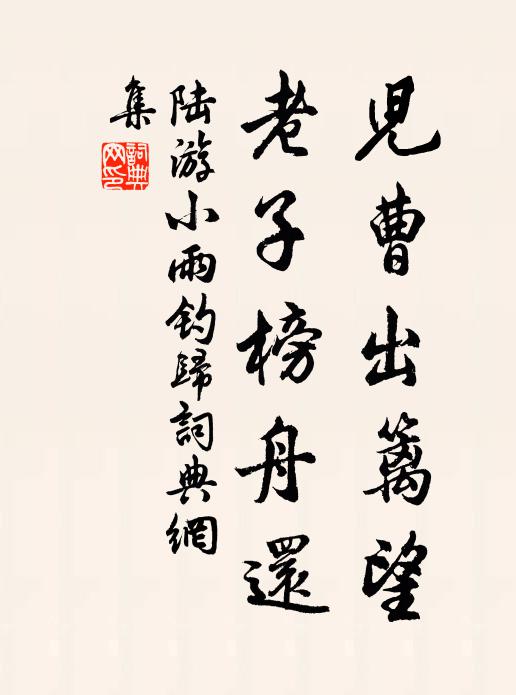 兒曹出籬望
老子榜舟還
陸游小雨钓歸詞典網
集
詞典網印